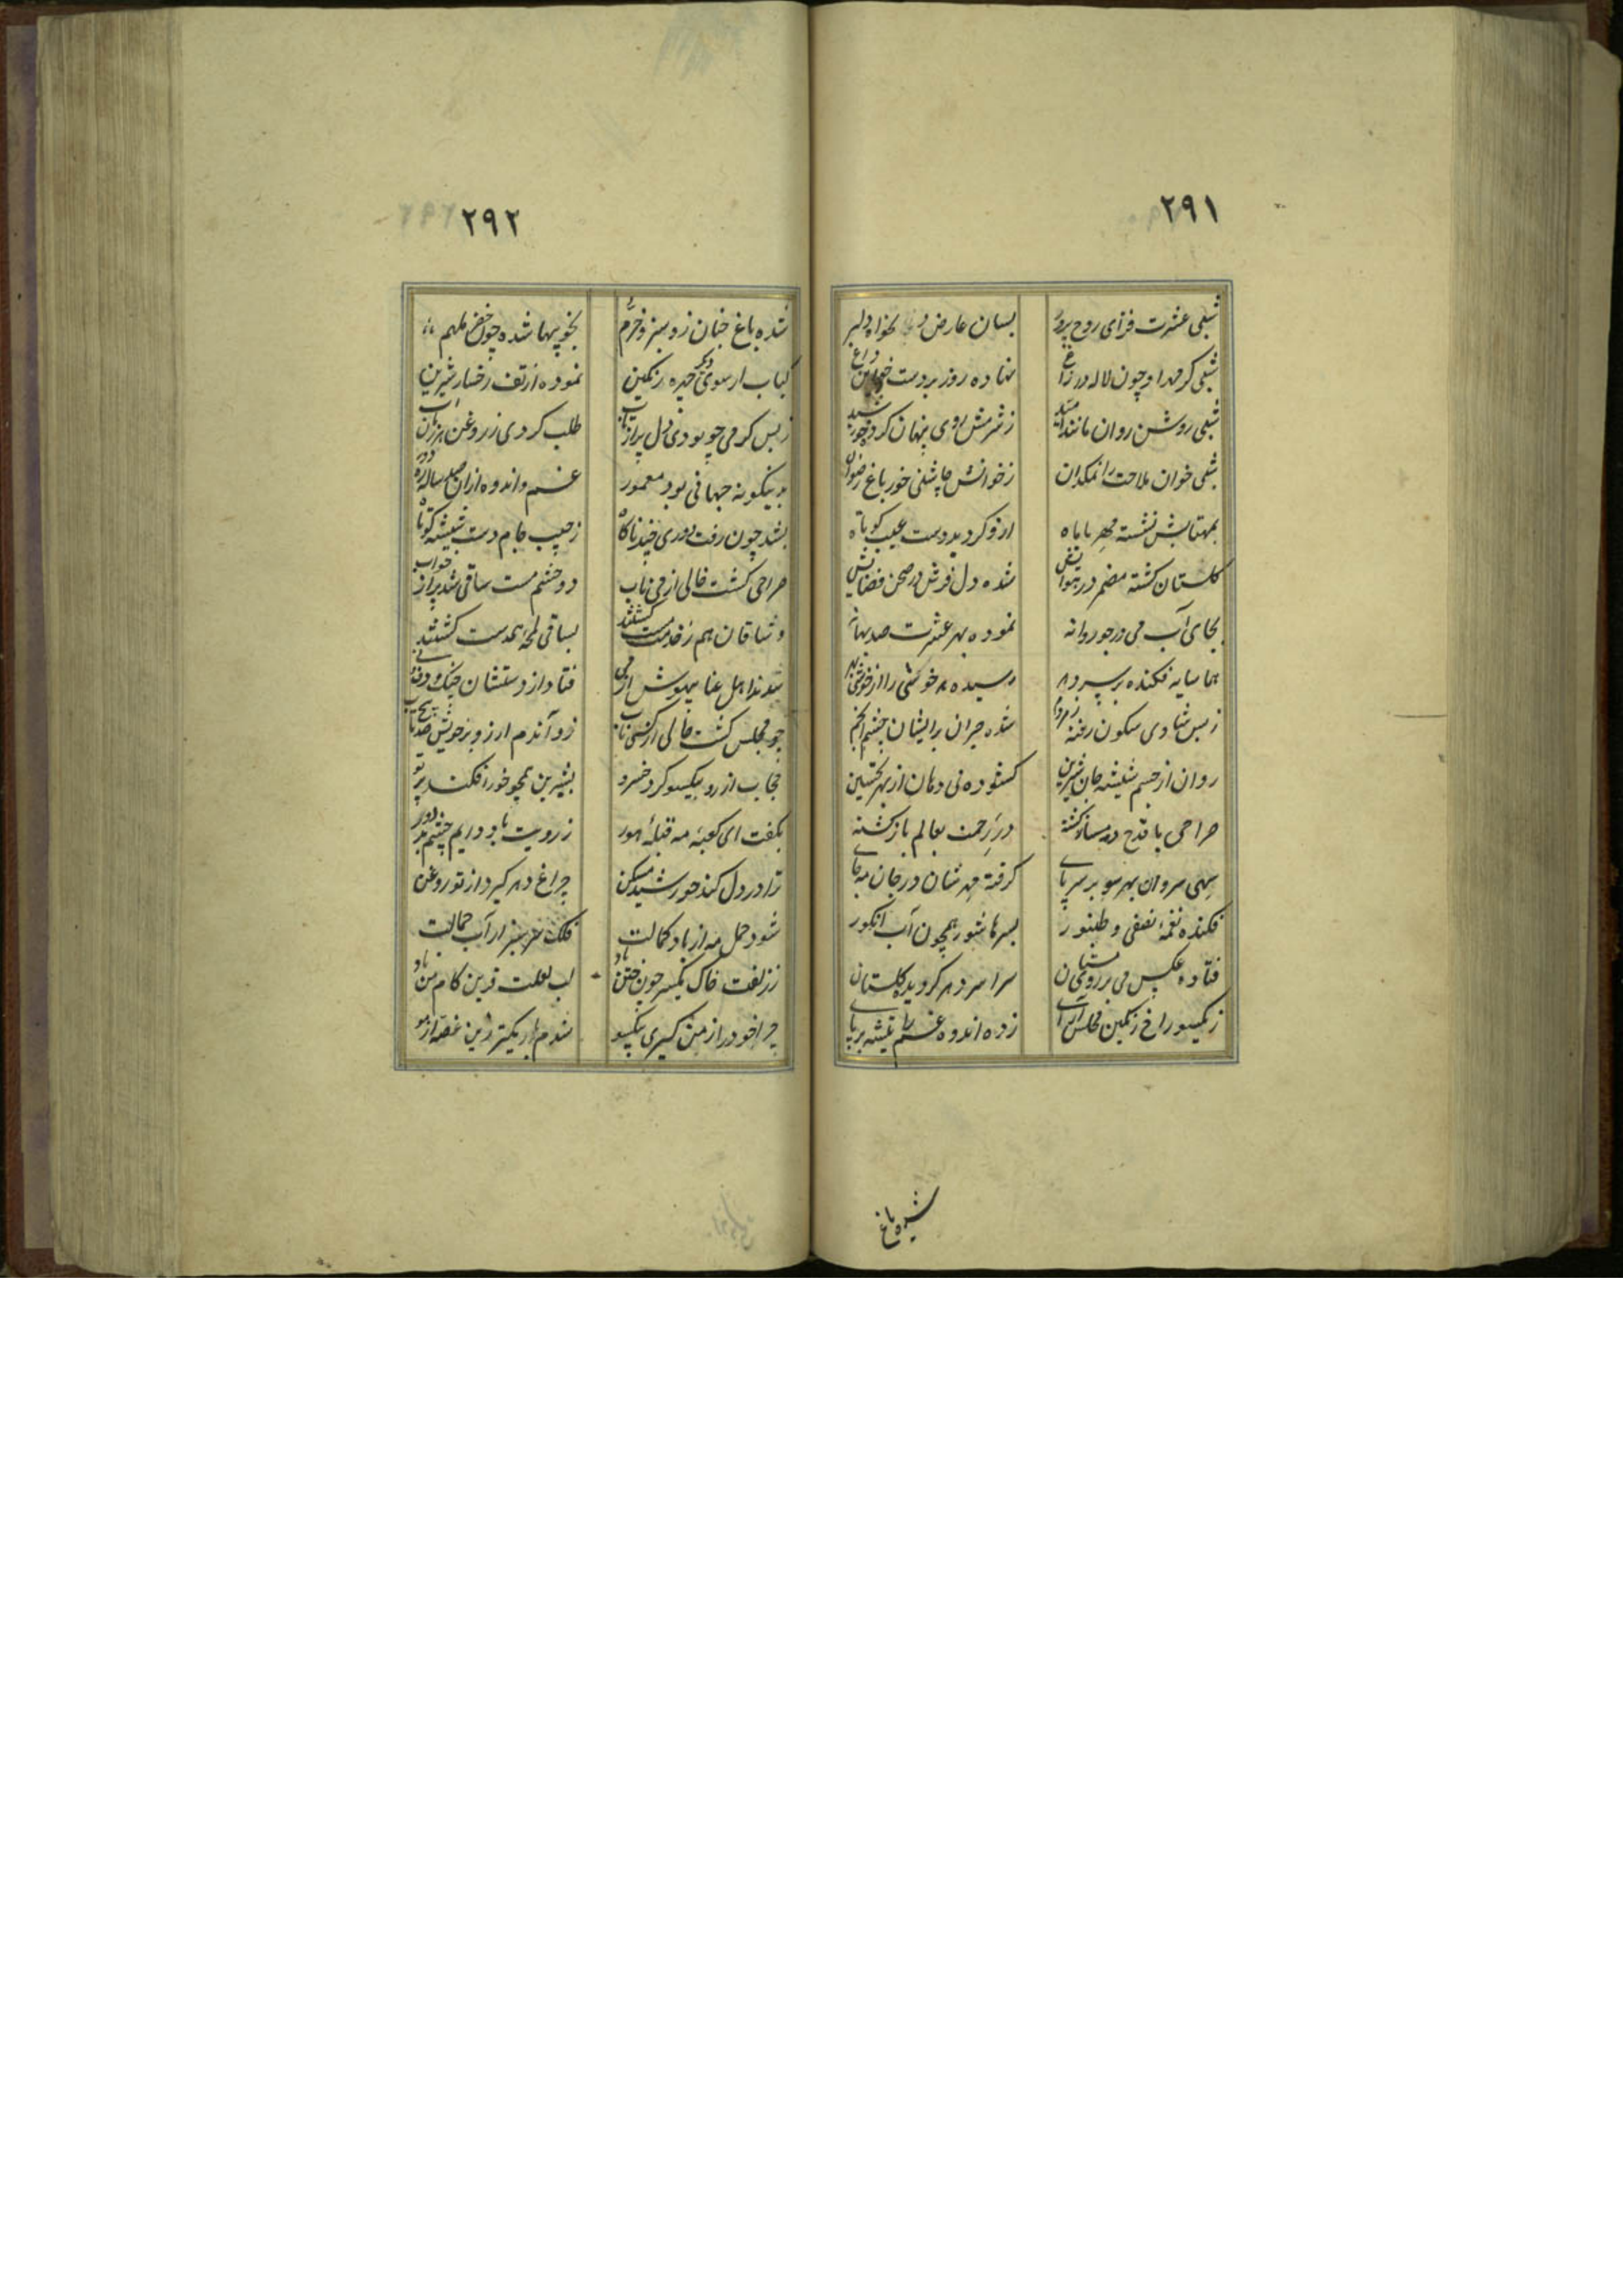 ۲۹۱
شبی عشرت فزای روح پرور
بسان عارض دلخواه دلبر
شبی کز مهر او چون لاله در زاغ
نهاده روز بر دست داغ
شبی روشن روان مانند امید
ز شرمش روی پنهان کرد خورشید
شبی خوان ملاحت را نمکدان
ز خوانش چاشنی خور باغ رضوان
بمهتابش نشسته مهر با ماه
ازو گردیده دست عیب کوتاه
گلستان گشته مضمر در هوایش
شده دل فرش در صحن فضایش
بجای آب می در جو روانه
نموده بهر عشرت صد بهانه
هما سایه فکنده بر سپر دم
رسیده هر خوشی را از خوشی
ز بس شادی سکون رفته ز مردم
شده حیران بر ایشان چشم انجم
روان از جسم شیشه جان شیرین
گشوده نی دهان از بهر تحسین
صراحی با قدح دمساز گشته
در رحمت بعالم باز گشته
سهی سروان بهر سو بر سر پای
گرفته مهرشان در جان مه جای
فکنده نغمه نفی و طنبور
بسرها شور همچون آب انگور
فتاده عکس می بر روی مستان
سراسر دهر گردیده گلستان
ز یکسو راغ رنگین مجلس آرای
زده اندوه و غم را تیشه بر پای
شده باغ
۲۹۲
شده باغ جنان زو سبز و خرم
بخوبیها شده چون خضر ملهم
کباب از سوی دیگر چیده رنگین
نموده از تف رخسار شیرین
ز بس گرمی چو بودی دل پر از تاب
طلب کردی ز روغن هر زمان آب
بدینگونه جهانی بود معمور
غم و اندوه ازان صد ساله ره دور
بشد چون رفت دوری چند ناگاه
ز جیب جام دست شیشه کوتاه
صراحی گشت خالی از می ناب
دو چشم مست ساقی شد پر از خواب
وشاقان هم ز خدمت مست گشتند
بساقی لحظه همدست گشتند
شدند اهل غنا بیهوش از می
فتاد از دستشان چنگ و دف و نی
چو مجلس گشت خالی از کسی ناب
زد آندم ارزو بر خویش صد تاب
حجاب از رو بیکسو کرد خسرو
بشیرین همچو خور افکند پرتو
بگفت ای کعبه مه قبله هور
ز رویت باد دایم چشم بد دور
ترا در دل کند خورشید مسکن
چراغ دهر گیرد از تو روغن
شود حمل مه از باد کمالت
فلک سرسبز از آب جمالت
ز زلفت خاک یکسر چون ختن باد
لب لعلت قرین کام من باد
چرا خود را ز من گیری بیکسو
شدم باریکتر زین غصه از مو